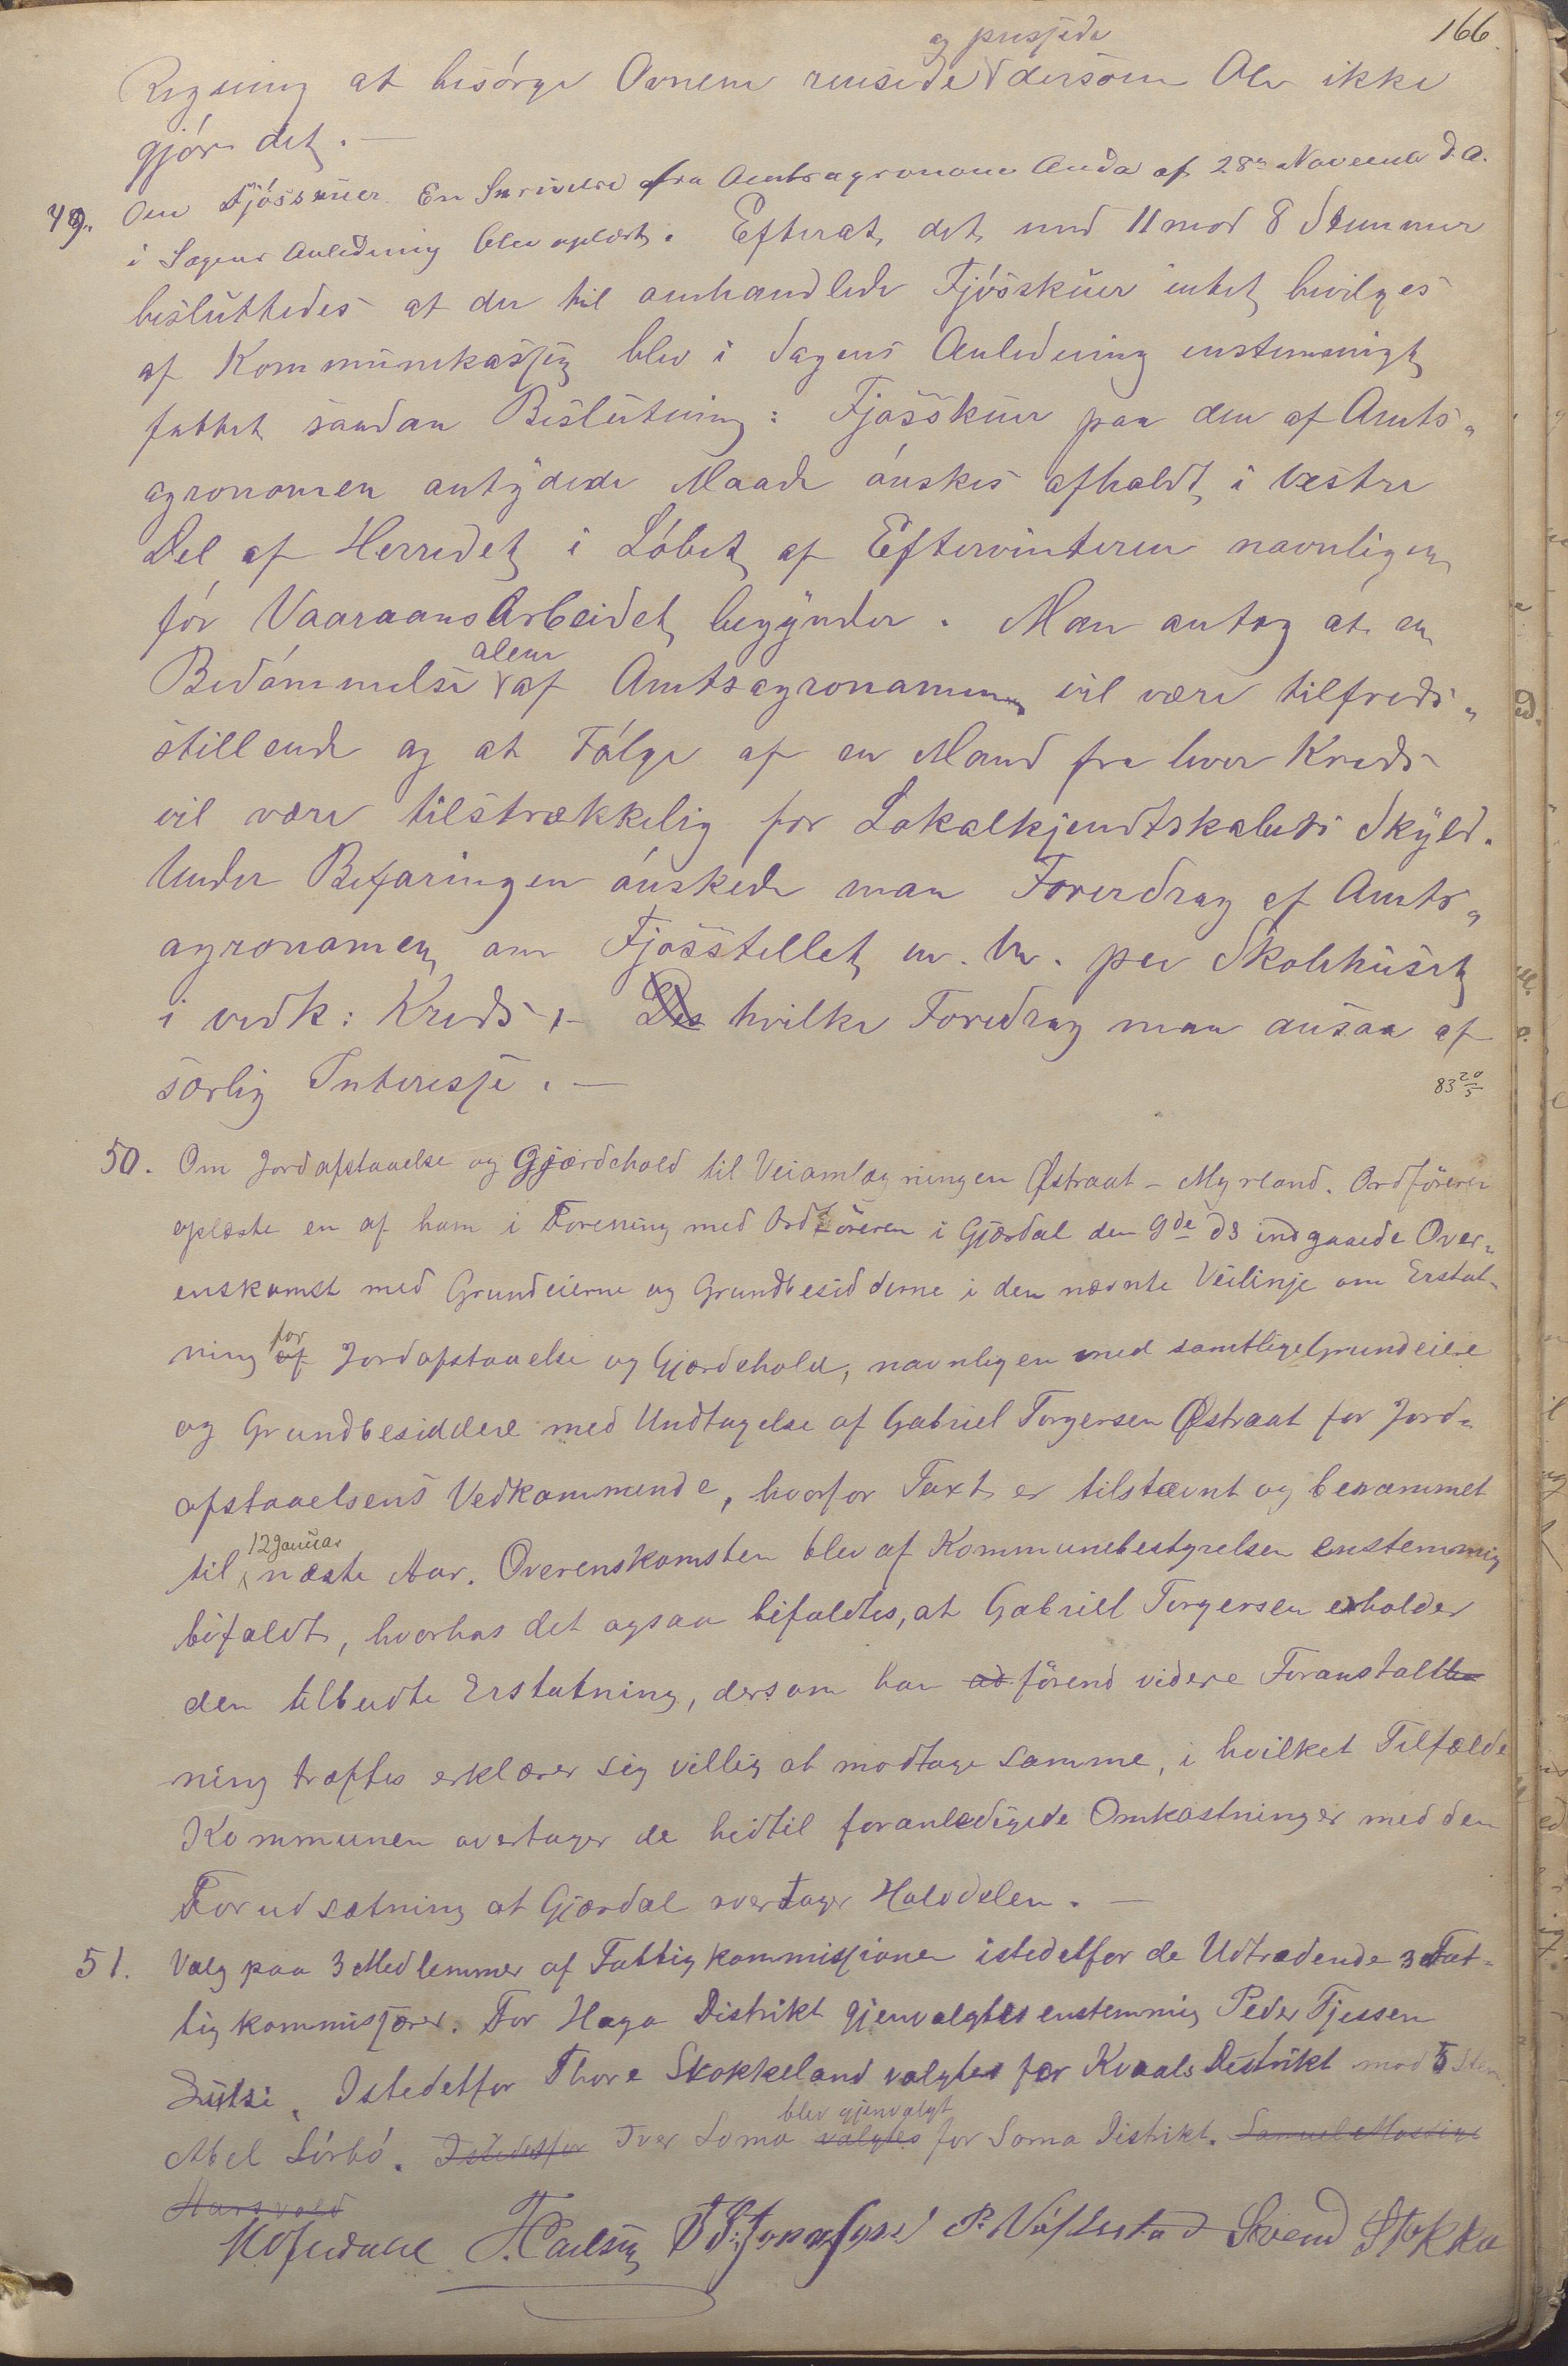 166.
og pussede
Regning at besørge Ovnene rensede dersom Olev ikke
gjør det. —
49. Om Fjøsskuer. En Skrivelse fra Amtsagronom Anda af 28de Novemb d. A.
i Sagens Anledning blev oplæst. Efterat det med 11 mod 8 Stemmer
besluttedes at der til omhandlede Fjøsskuer intet bevilges
af Kommunekassen blev i Sagens Anledning enstemmigt
fattet saadan Beslutning: Fjøsskuer paa den af Amts-
agronomen antydede Maade ønskes afholdt i Vestre
Del af Herredet i Løbet af Eftervinteren navnligen
før Vaaraansarbeidet begynder. Man antog at en
alene
Bedømmelse af Amtsagronomen vil være tilfreds-
stillende og at Følge af en Mand fra hver Kreds
vil være tilstrækkelig for Lokalkjendtskabets Skyld.
Under Befaringen ønskede man Foredrag af Amts-
agronomen om Fjøsstellet m. m. paa Skolehuset
i vedk: Kreds, — Des hvilke Foredrag man ansaa af
særlig Interesse. —
83 20/5
50. Om Jordafstaaelse og Gjærdehold til Veiomlægningen Østraat - Myrland. Ordføreren
oplæste en af ham i Forening med Ordføreren i Gjæsdal den 9de ds indgaaede Over-
enskomst med Grundeierne og Grundbesidderne i den nævnte Veilinje om Erstat-
for
ning af Jordafstaaelse og Gjærdehold, navnligen med samtlige Grundeiere
og Grundbesiddere med Undtagelse af Gabriel Torgersen Østraat for Jord-
afstaaelsens Vedkommende, hvorfor Taxt er tilstævnt og berammet
12 Januar
til næste Aar. Overenskomsten blev af Kommunebestyrelsen enstemmig
bifaldt, hvorhos det ogsaa bifaldtes, at Gabriel Torgersen erholder
den tilbudte Erstatning, dersom han ad førend videre Foranstalt
ning træffes erklærer sig villig at modtage samme, i hvilket Tilfælde
Kommunen overtager de hidtil foranledigede Omkostninger med den
Forudsætning at Gjæsdal overtager Halvdelen. —
51. Valg paa 3 Medlemmer af Fattigkommissionen istedetfor de Udtrædende 3 Fat-
tigkommisærer. For Hogo Distrikt gjenvalgtes enstemmig Peder Tjessen
Istedetfor Thore Skokkeland valgtes for Kvaals Distrikt mod 5 Stem.
blev gjenvalgt
Abel Sørbø. Istedetfor Iver Soma valgtes for Soma Distrikt. Samuel
P. Svend Stokka